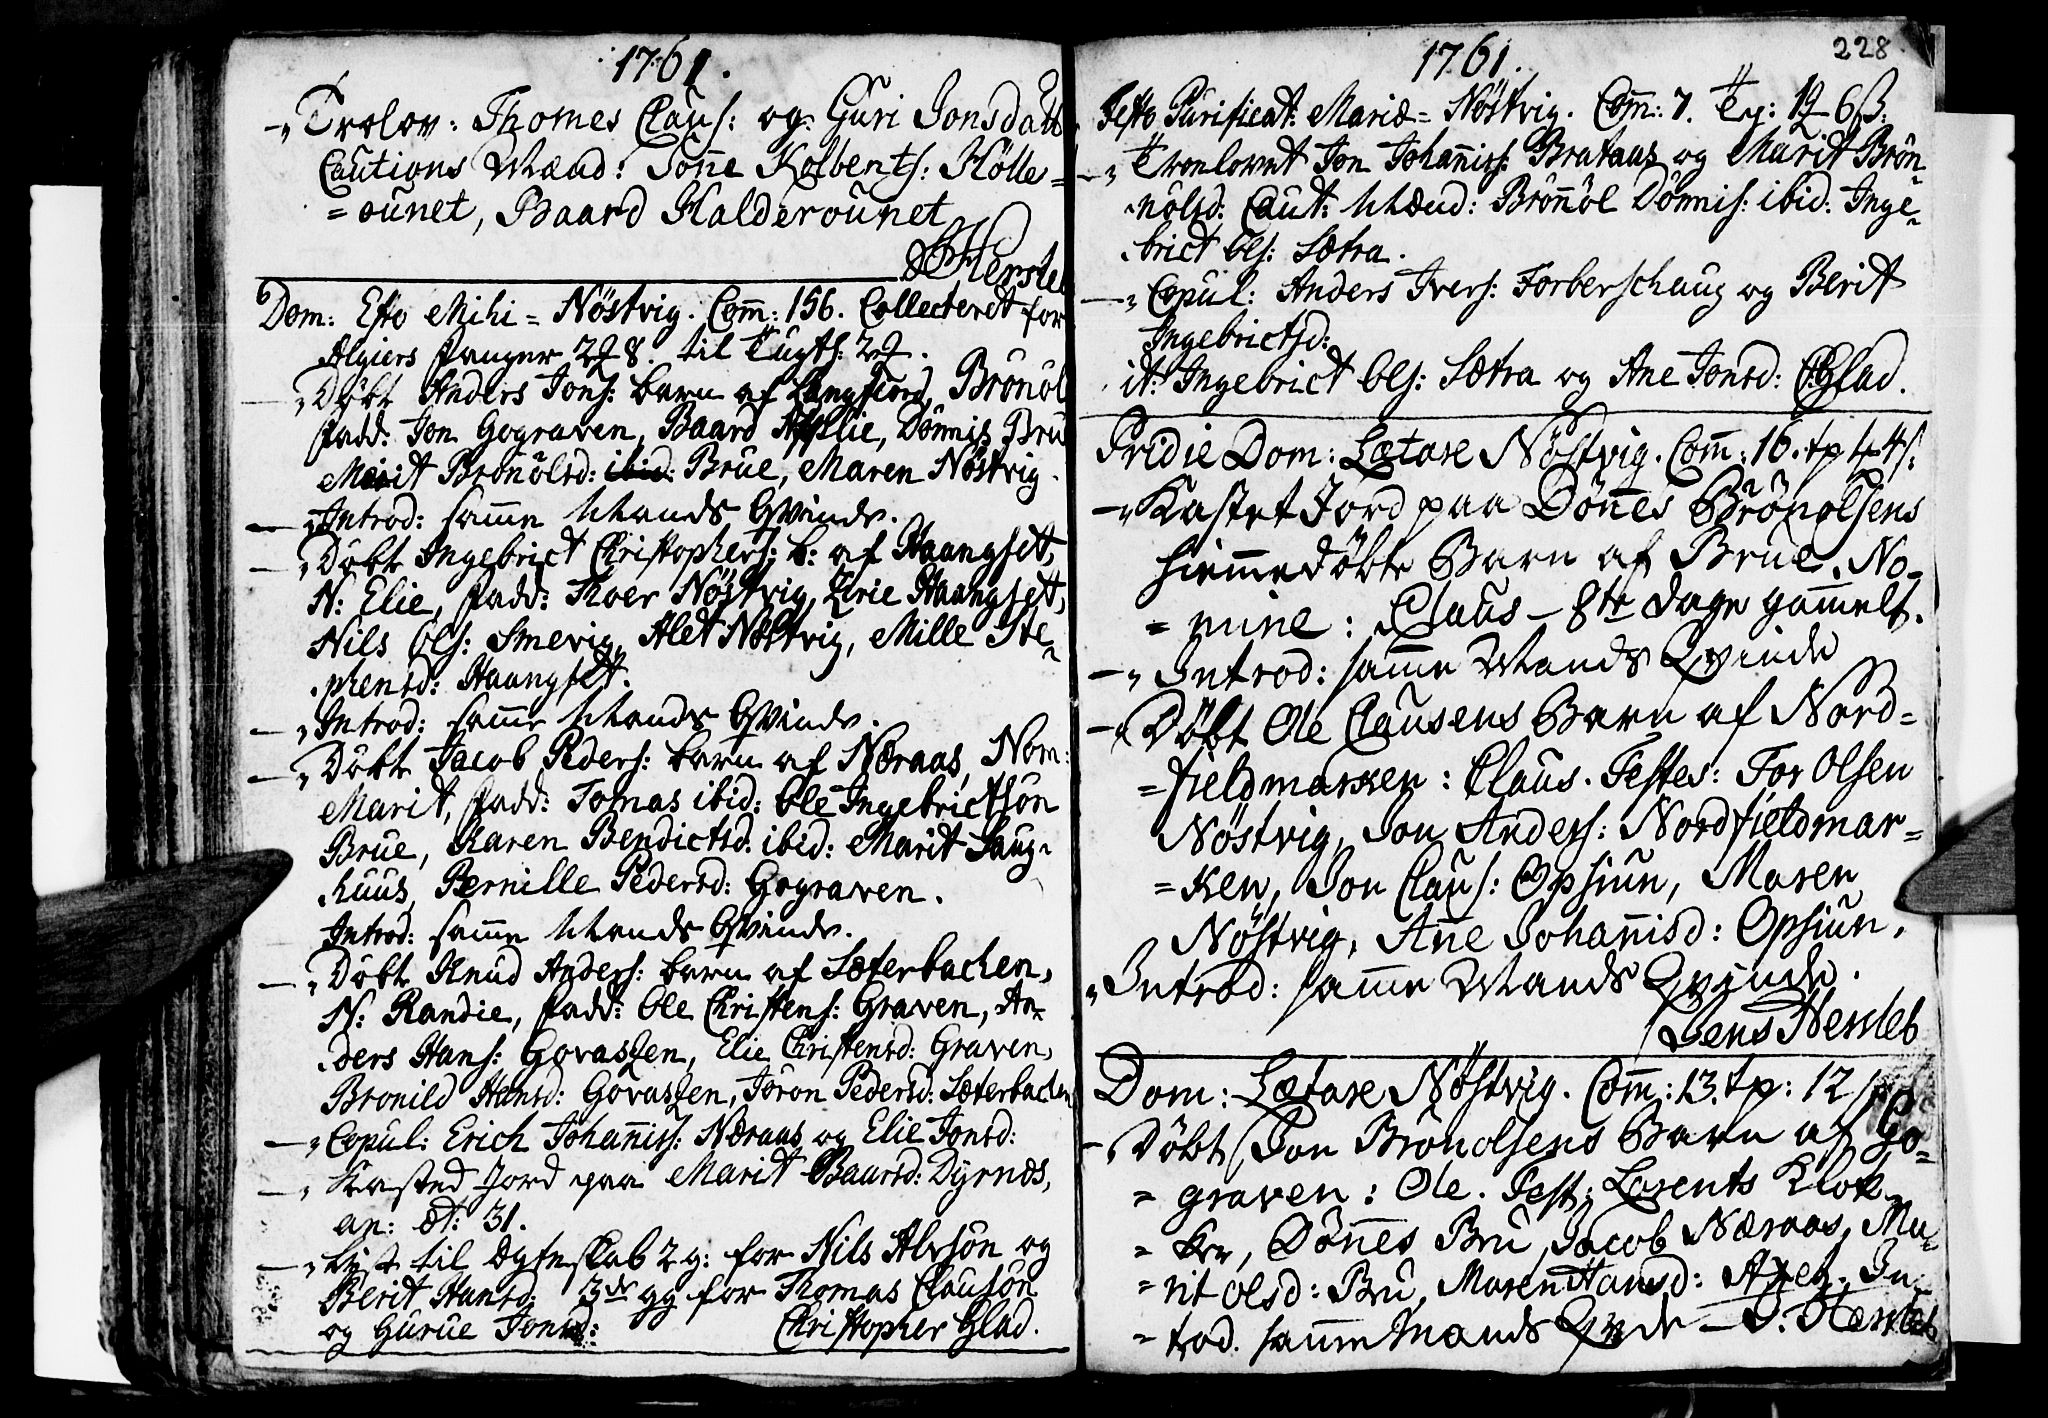 1761.
Trolov: Thomes Claus: og: Guri Jonsdatt
Cautions Mænd: Tonne Kolbents: Hölle=
=ounet, Baard Halderounet
Hersleb
Dom: Esto Mihi = Nöstvig. Com: 156. Collecteret for
Algiers fanger 2 8. til Tugts: 2
Döbt Anders Jons: barn af Langfiord, Brönöl
fadd: Jon Gograven, Baard Applie, Dönnis Bru
Marit Brönölsd: ibid: Brue, Maren Nöstvig.
Introd: samme Mands Qvinde.
Döbt Ingebrict Christophers: b: af Haangset,
N: Elie, fadd: Thoer Nöstvig, Zirie Haangset,
Nils Ols: Smevig, Alet Nöstvig, Mille Ste-
phensd: Haangset.
Introd: samme Mands Qvinde.
Döbt Jacob Peders: barn af Næraas, Nom:
Marit, fadd: Tomas ibid: Ole Ingebrictsön
Brue, Karen Bendictsd: ibid: Marit Saug-
huus, Pernille Pedersd: Gograven.
Introd: samme Mands Qvinde.
Döbt Knud Anders: barn af Sæterbachen,
N: Randie, fadd: Ole Christens: Graven, An-
ders Hans: Govassen, Elie Christensd: Graven,
Bronild Hansd: Govassen, Jöron Pedersd: Sæterbachen
Copul: Erich Johaniss: Næraas og Elie Jonsd:
Kasted Jord paa Marit Baarsd: Dyrnæs,
an: æt: 31.
Lyst til Ægteskab 2 g: for Nils Alvsön og
Berit Hansd: 3de gg for Thomas Clausön
og Gurue Jonsd: Christopher Glad.
1761.
228
Festo Purificat: Mariæ = Nöstvig. Com: 7. Tp: 12 6ß.
Troelovet Jon Johaniss: Brataas og Marit Brön-
nölsd. Caut: Mænd: Brönnöl Dönnis: ibid: Inge-
brict Ols: Sætra.
Copul: Anders Ivers: Forberschaug og Berit
Ingebrictsd:
it: Ingebrict Ols: Sætra og Ane Jonsd: CGlad.
Pridie Dom: Lætare Nöstvig. Com: 16. tp 4 4s:
Kastet Jord paa Dönnes Brönolsens
hiemmedöbte Barn af Brue. No-
=mine: Claus - 8te Dage gammelt.
Introd: samme Mands Qvinde
Döbt Ole Clausens Barn af Nord=
=fieldmarken: Claus. Testes: Tor Olsen
Nöstvig, Jon Anders: Nordfieldmar=
=ken, Jon Claus: Opsiun, Maren
Nöstvig, Ane Johannisd: Opsiun.
Introd: samme Mands Qvinde.
Jens Hersleb
Dom: Lætare Nöstvig. Com: 13. tp: 12
Döbt Jon Brönolsens Barn af Go=
=graven: Ole. Test: Lorents Klok-
=ker, Dönnes Bru, Jacob Næraas, Ma-
=rit Olsd: Bru, Maren Hansd: In
=trod. samme Mands Qvde - J. Hersleb